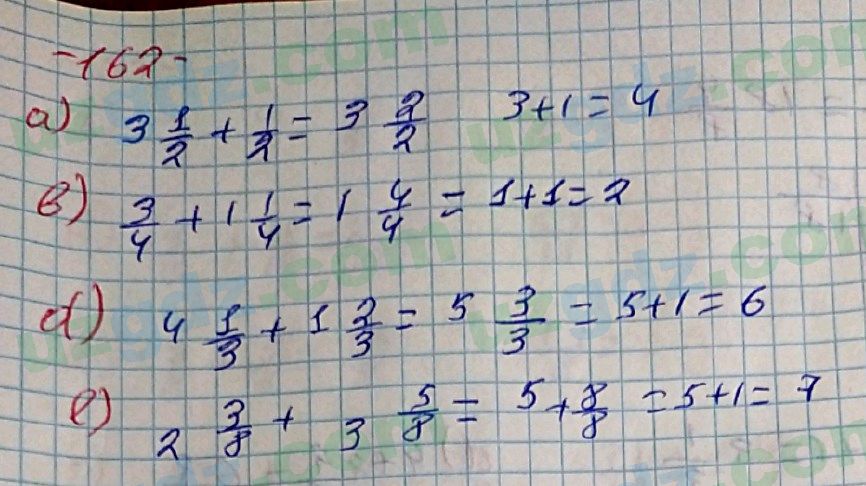 -162-
a) 3 1/2 + 1/2 = 3 2/2 3+1=4
b) 3/4 + 1 1/4 = 1 4/4 = 1+1=2
d) 4 1/3 + 1 2/3 = 5 3/3 = 5+1=6
e) 2 3/8 + 3 5/8 = 5 + 8/8 = 5+1= 7
uzgdz.com